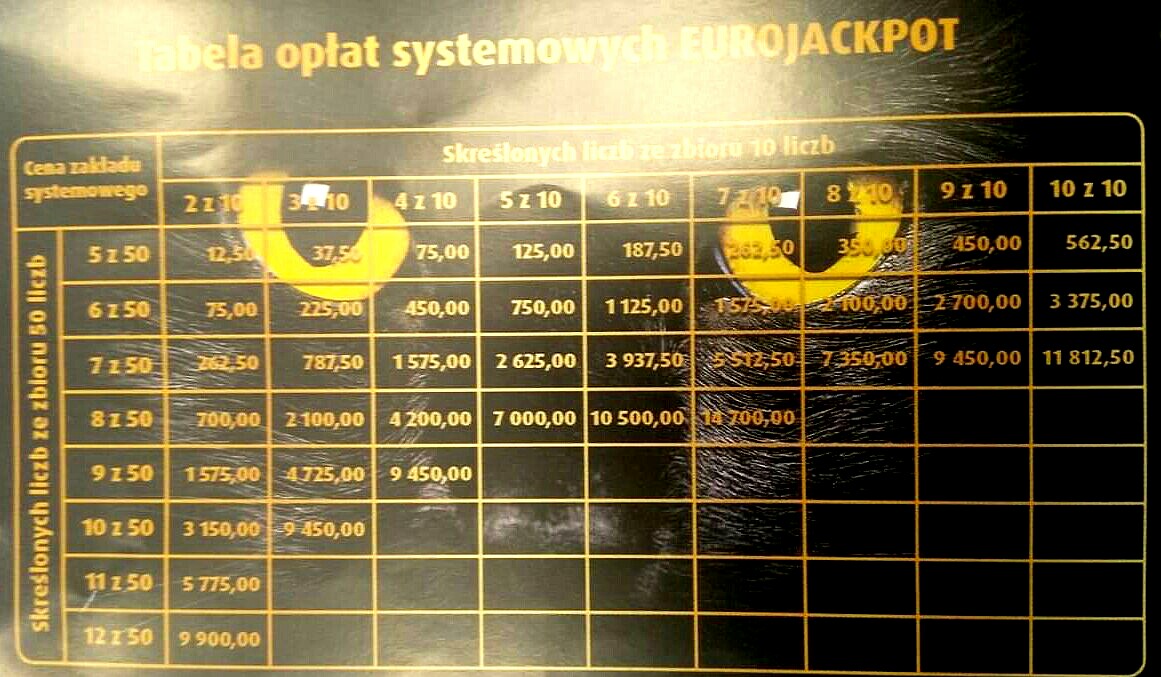 Tabela opłat systemowych EUROJACKPOT
Cena zakładu
systemowego
Skreślonych liczb ze zbioru 10 liczb
2 z 10 3 z 10 4 z 10 5 z 10 6 z 10 7 z 10 8 z 10 9 z 10 10 z 10
Skreślonych liczb ze zbioru 50 liczb
5 z 50 12,50 37,50 75,00 125,00 187,50 262,50 350,00 450,00 562,50
6 z 50 75,00 225,00 450,00 750,00 1 125,00 1 575,00 2 100,00 2 700,00 3 375,00
7 z 50 262,50 787,50 1 575,00 2 625,00 3 937,50 5 512,50 7 350,00 9 450,00 11 812,50
8 z 50 700,00 2 100,00 4 200,00 7 000,00 10 500,00 14 700,00
9 z 50 1 575,00 4 725,00 9 450,00
10 z 50 3 150,00 9 450,00
11 z 50 5 775,00
12 z 50 9 900,00